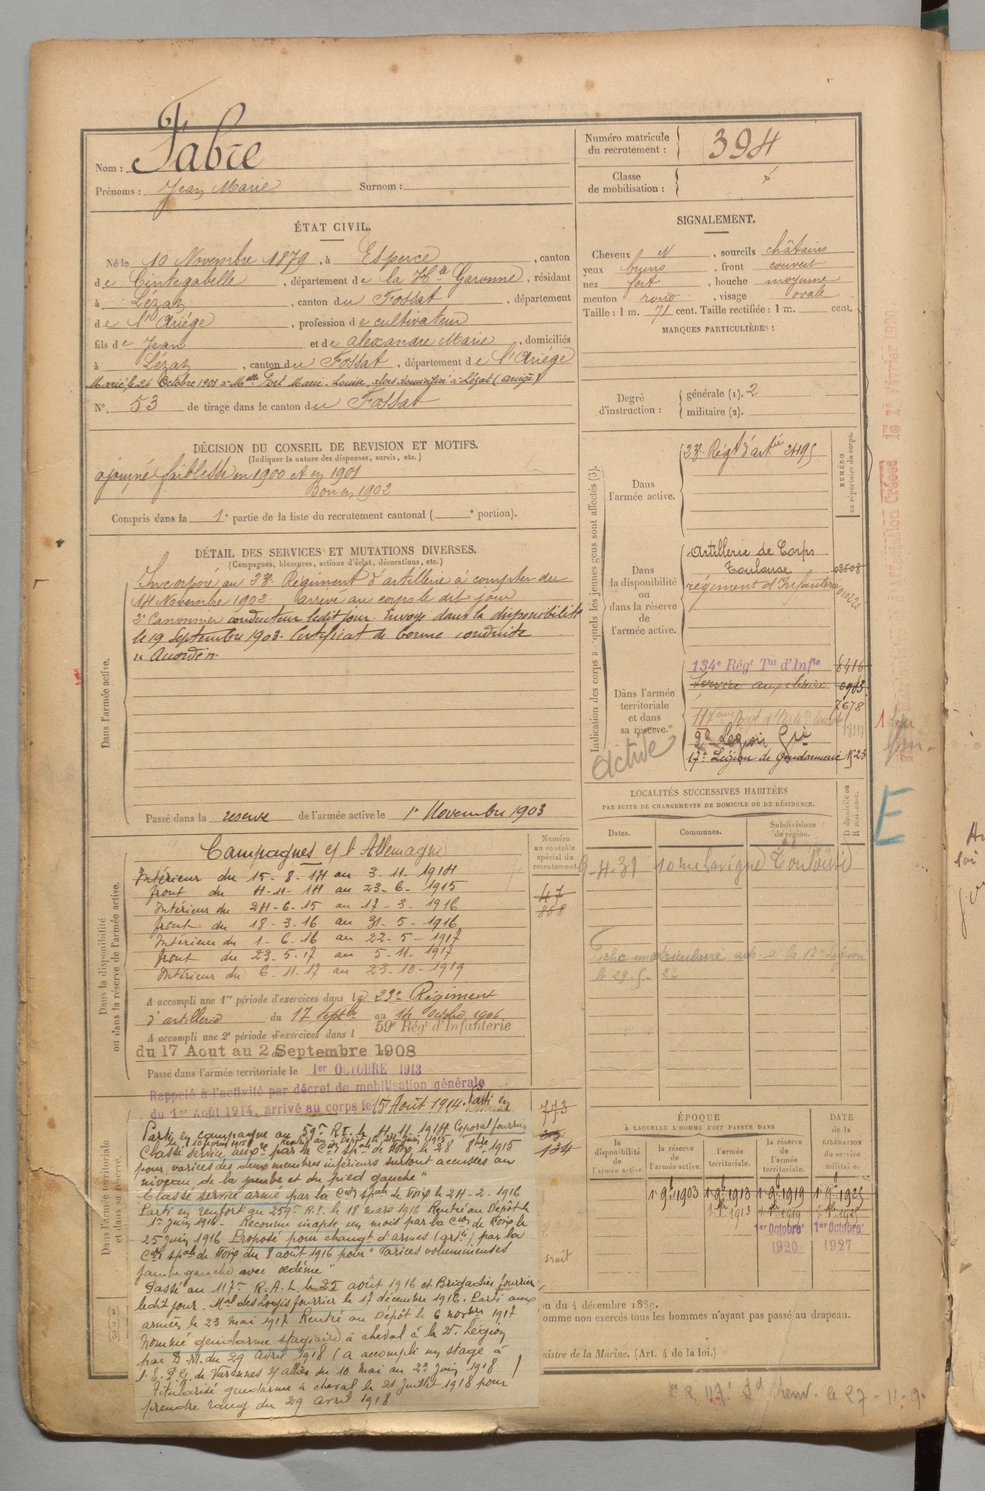 Nom : Fabre
Prénoms : Jean Marie Surnom :
Numéro matricule du recrutement : 394
Classe de mobilisation :
ÉTAT CIVIL.
Né le 10 Novembre 1879, à Esperce, canton
de Cintegabelle, département de la Hte Garonne, résidant
à Lézat, canton du Fossat, département
de l'Ariége, profession de cultivateur
fils de Jean et de Alexandre Marie, domiciliés
à Lézat, canton du Fossat, département de l'Ariége
Marié le 26 Octobre 1901 à Melle Fort Marie Louise, alors domiciliée à Lézat (Ariège)
N° 53 de tirage dans le canton du Fossat
SIGNALEMENT.
Cheveux N, sourcils châtains
yeux bruns, front couvert
nez fort, bouche moyenne
menton rond, visage ovale
Taille : 1 m. 71 cent. Taille rectifiée : 1 m. cent.
MARQUES PARTICULIÈRES :
Degré d'instruction : générale (1). 2
militaire (2).
DÉCISION DU CONSEIL DE REVISION ET MOTIFS.
(Indiquer la nature des dispenses, sursis, etc.)
ajourné faiblesse en 1900 et en 1901
Bon en 1902
Compris dans la 1e partie de la liste du recrutement cantonal ( e portion).
DÉTAIL DES SERVICES ET MUTATIONS DIVERSES.
(Campagnes, blessures, actions d'éclat, décorations, etc.)
Dans l'armée active.
Incorporé au 23e Régiment d'artillerie à compter du
14 Novembre 1902 arrivé au corps le dit jour
2e Canonnier conducteur ledit jour. Envoyé dans la disponibilité
le 19 Septembre 1903. Certificat de bonne conduite
"Accordé".
Passé dans la réserve de l'armée active le 1er Novembre 1903
Indication des corps auxquels les jeunes gens sont affectés (3).
NUMÉRO au répertoire du corps.
Dans l'armée active.
23e Régt d'artie 2195
Dans la disponibilité ou dans la réserve de l'armée active.
Artillerie de Corps
Toulouse
régiment d'Infanterie
Dans l'armée territoriale et dans sa réserve.
134e Régt Tal d'Infie 6416
Service auxiliaire 0903
7678
17e Légion de Gendarmerie
active
E
LOCALITÉS SUCCESSIVES HABITÉES
PAR SUITE DE CHANGEMENTS DE DOMICILE OU DE RÉSIDENCE.
Dates. Communes. Subdivisions de région. D domicile ou R résidence.
Toulouse
Dans la disponibilité ou dans la réserve de l'armée active.
Numéro au contrôle spécial du recrutement
47
868
Campagnes c/ l'Allemagne
Intérieur du 15-8-14 au 3-11-1914
front du 4-11-14 au 23-6-1915
Intérieur du 24-6-15 au 17-3-1916
front du 18-3-16 au 31-5-1916
Intérieur du 1-6-16 au 22-5-1917
front du 23-5-17 au 5-11-1917
Intérieur du 6-11-17 au 23-10-1919
A accompli une 1re période d'exercices dans le 23e Régiment
d'artillerie du 17 Septbre au 14 Octobre 1906
A accompli une 2e période d'exercices dans le 59e Régt d'Infanterie
du 17 Aout au 2 Septembre 1908
Passé dans l'armée territoriale le 1er OCTOBRE 1913
Rappelé à l'activité par décret de mobilisation générale
du 1er Août 1914, arrivé au corps le 15 Août 1914. Parti en
Dans l'armée territoriale et dans sa réserve.
773
134
Parti en campagne au 59e R.I. le 4-11-1914 Caporal fourrier
Classé service auxre par la Con spale de Foix le 28 8bre 1915
pour varices des deux membres inférieurs surtout accusées au
niveau de la jambe et du pied gauche"
Classé service armé par la Con spale de Foix le 24-2-1916
Parti en renfort au 259e R.I. le 18 mars 1916 Rentré au Dépôt le
1er Juin 1916. Reconnu inapte un mois par la Con de Foix le
25 Juin 1916 Proposé pour changt d'armes (artie) par la
Con spale de Foix du 8 août 1916 pour "Varices volumineuses
jambe gauche avec œdème"
Passé au 117e R.A.L. le 25 août 1916 et Brigadier fourrier
ledit jour. Mal des Logis fourrier le 17 décembre 1916. Parti aux
armées le 23 mai 1917 Rentré au Dépôt le 6 novbre 1917
Nommé gendarme stagiaire à cheval à la 2e Légion
par D.M. du 29 avril 1918 (a accompli un stage à
de Varennes s/ allier du 10 mai au 22 Juin 1918)
Titularisé gendarme à cheval le 21 Juillet 1918 pour
prendre rang du 29 avril 1918
ÉPOQUE
À LAQUELLE L'HOMME DOIT PASSER DANS
la disponibilité de l'armée active. la réserve de l'armée active. l'armée territoriale. la réserve de l'armée territoriale.
DATE de la LIBÉRATION du service militaire.
1r 9bre 1903 1r 9bre 1913 1r 9bre 1919
1er Octobre 1920 1er Octobre 1927
n du 4 décembre 1889.
omme non exercés tous les hommes n'ayant pas passé au drapeau.
nistre de la Marine. (Art. 4 de la loi.)